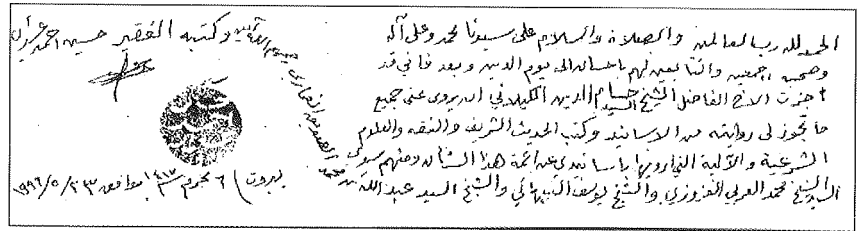 الحمد لله رب العالمين والصلاة والسلام على سيدنا محمد وعلى آله
وصحبه أجمعين والتابعين لهم بإحسان الى يوم الدين وبعد فاني قد
اجزت الاخ الفاضل الشيخ السيد حسام الدين الكيلاني ان يروي عني جميع
ما تجوز لي روايته من الاسانيد وكتب الحديث الشريف والفقه والعلوم
الشرعية والآلية التي ارويها باسانيدي عن ائمة هذا الشأن ومنهم سيدي
السيد الشيخ محمد العربي العزوزي والشيخ يوسف النبهاني والشيخ السيد عبد الله
بن محمد الصديق الغماري
وكتبه الفقير حسين احمد عسيران
بيروت ٦ محرم ١٤١٧ موافق ٢٣/٥/١٩٩٦